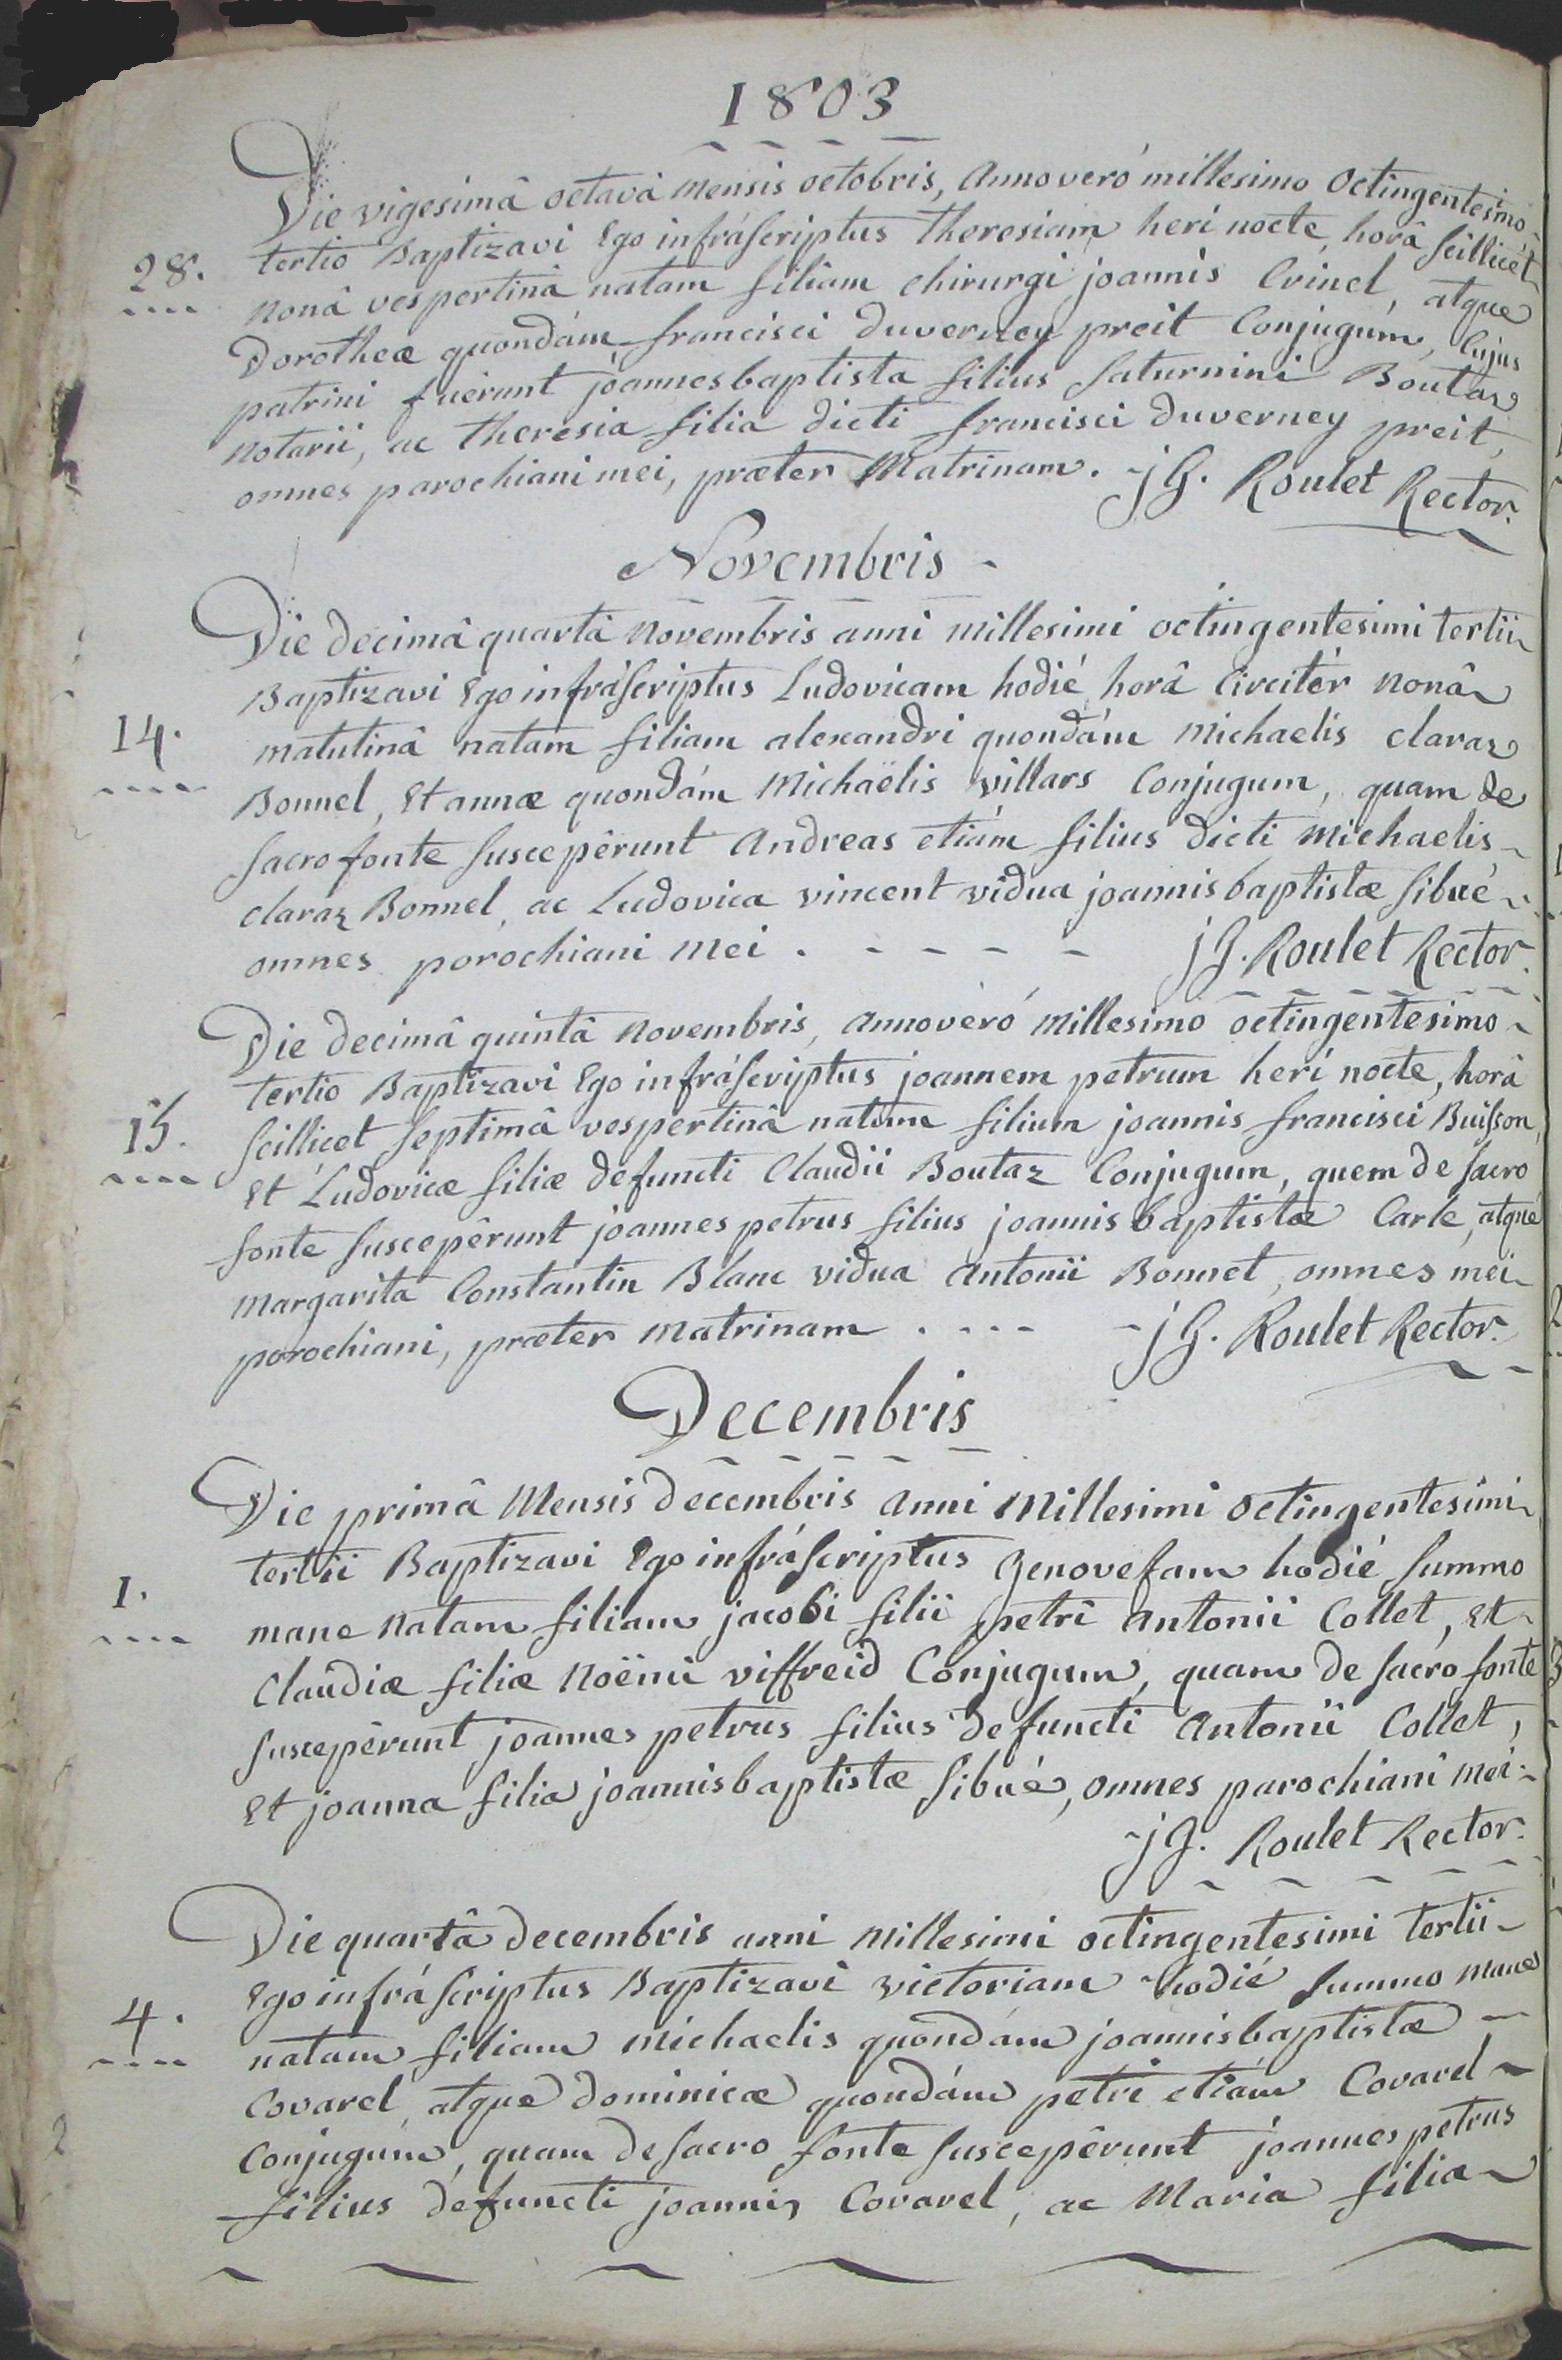 1803
Die vigesimâ octavâ mensis octobris, anno veró millesimo octingentesimo
28. tertio Baptizavi Ego infráscriptus theresiam heri nocte, horâ scillicét
nonâ vespertinâ natam filiam chirurgi joannis Crinel, atque
Dorotheæ quondám francisci duverney preit Conjugúm, Cujus
patrini fuêrunt joannesbaptista filius saturnini Boutaz
notarii, ac theresia filia dicti francisci duverney preit,
omnes parochiani mei, præter Matrinam. jG. Roulet Rector.
Novembris
Die decimâ quartâ novembris anni millesimi octingentesimi tertii
Baptizavi Ego infráscriptus Ludovicam hodié, horâ Circitér nonâ
14. matutinâ natam filiam alexandri quondám michaelis claraz
Bonnel, Et annæ quondám Michaëlis villars Conjugum, quam de
sacro fonte suscepêrunt andreas etiám filius dicti michaelis
claraz Bonnel, ac Ludovica vincent vidua joannisbaptistæ sibué
omnes parochiani mei . - - - - - jG. Roulet Rector.
Die decimâ quintâ novembris, anno veró millesimo octingentesimo
tertio Baptizavi Ego infráscriptus joannem petrum heri nocte, horâ
15. scillicet septimâ vespertinâ natum filium joannis francisci Buisson,
Et Ludovicæ filiæ defuncti Claudii Boutaz Conjugum, quem de sacro
fonte suscepêrunt joannes petrus filius joannis baptistæ Carle, atque
margarita Constantin Blanc vidua antonii Bonnet, omnes mei
parochiani, præter matrinam . - - - - jG. Roulet Rector.
Decembris
Die primâ Mensis decembris anni millesimi octingentesimi
tertii Baptizavi Ego infráscriptus genovefam hodié summo
1. mane natam filiam jacobi filii petri antonii Collet, Et
Claudiæ filiæ noëmi viffreid Conjugum, quam de sacro fonte
suscepêrunt joannes petrus filius defuncti antonii Collet,
Et joanna filia joannisbaptistæ sibué, omnes parochiani mei.
jG. Roulet Rector.
Die quartâ decembris anni millesimi octingentesimi tertii
Ego infráscriptus Baptizavi victoriam hodié summo mane
4. natam filiam michaelis quondám joannisbaptistæ
Covarel, atque dominicæ quondám petri etiám Covarel
Conjugum, quam de sacro fonte suscepêrunt joannes petrus
filius defuncti joannis Covarel, ac Maria filia